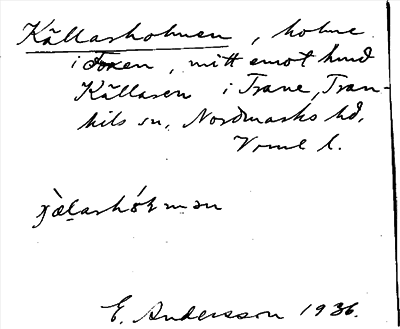 Källarholmen, holme
i Foxen, mitt emot hmd
Källaren i Trane, Tran-
kils sn, Nordmarks hd,
Vrml l.
E. Andersson 1936.